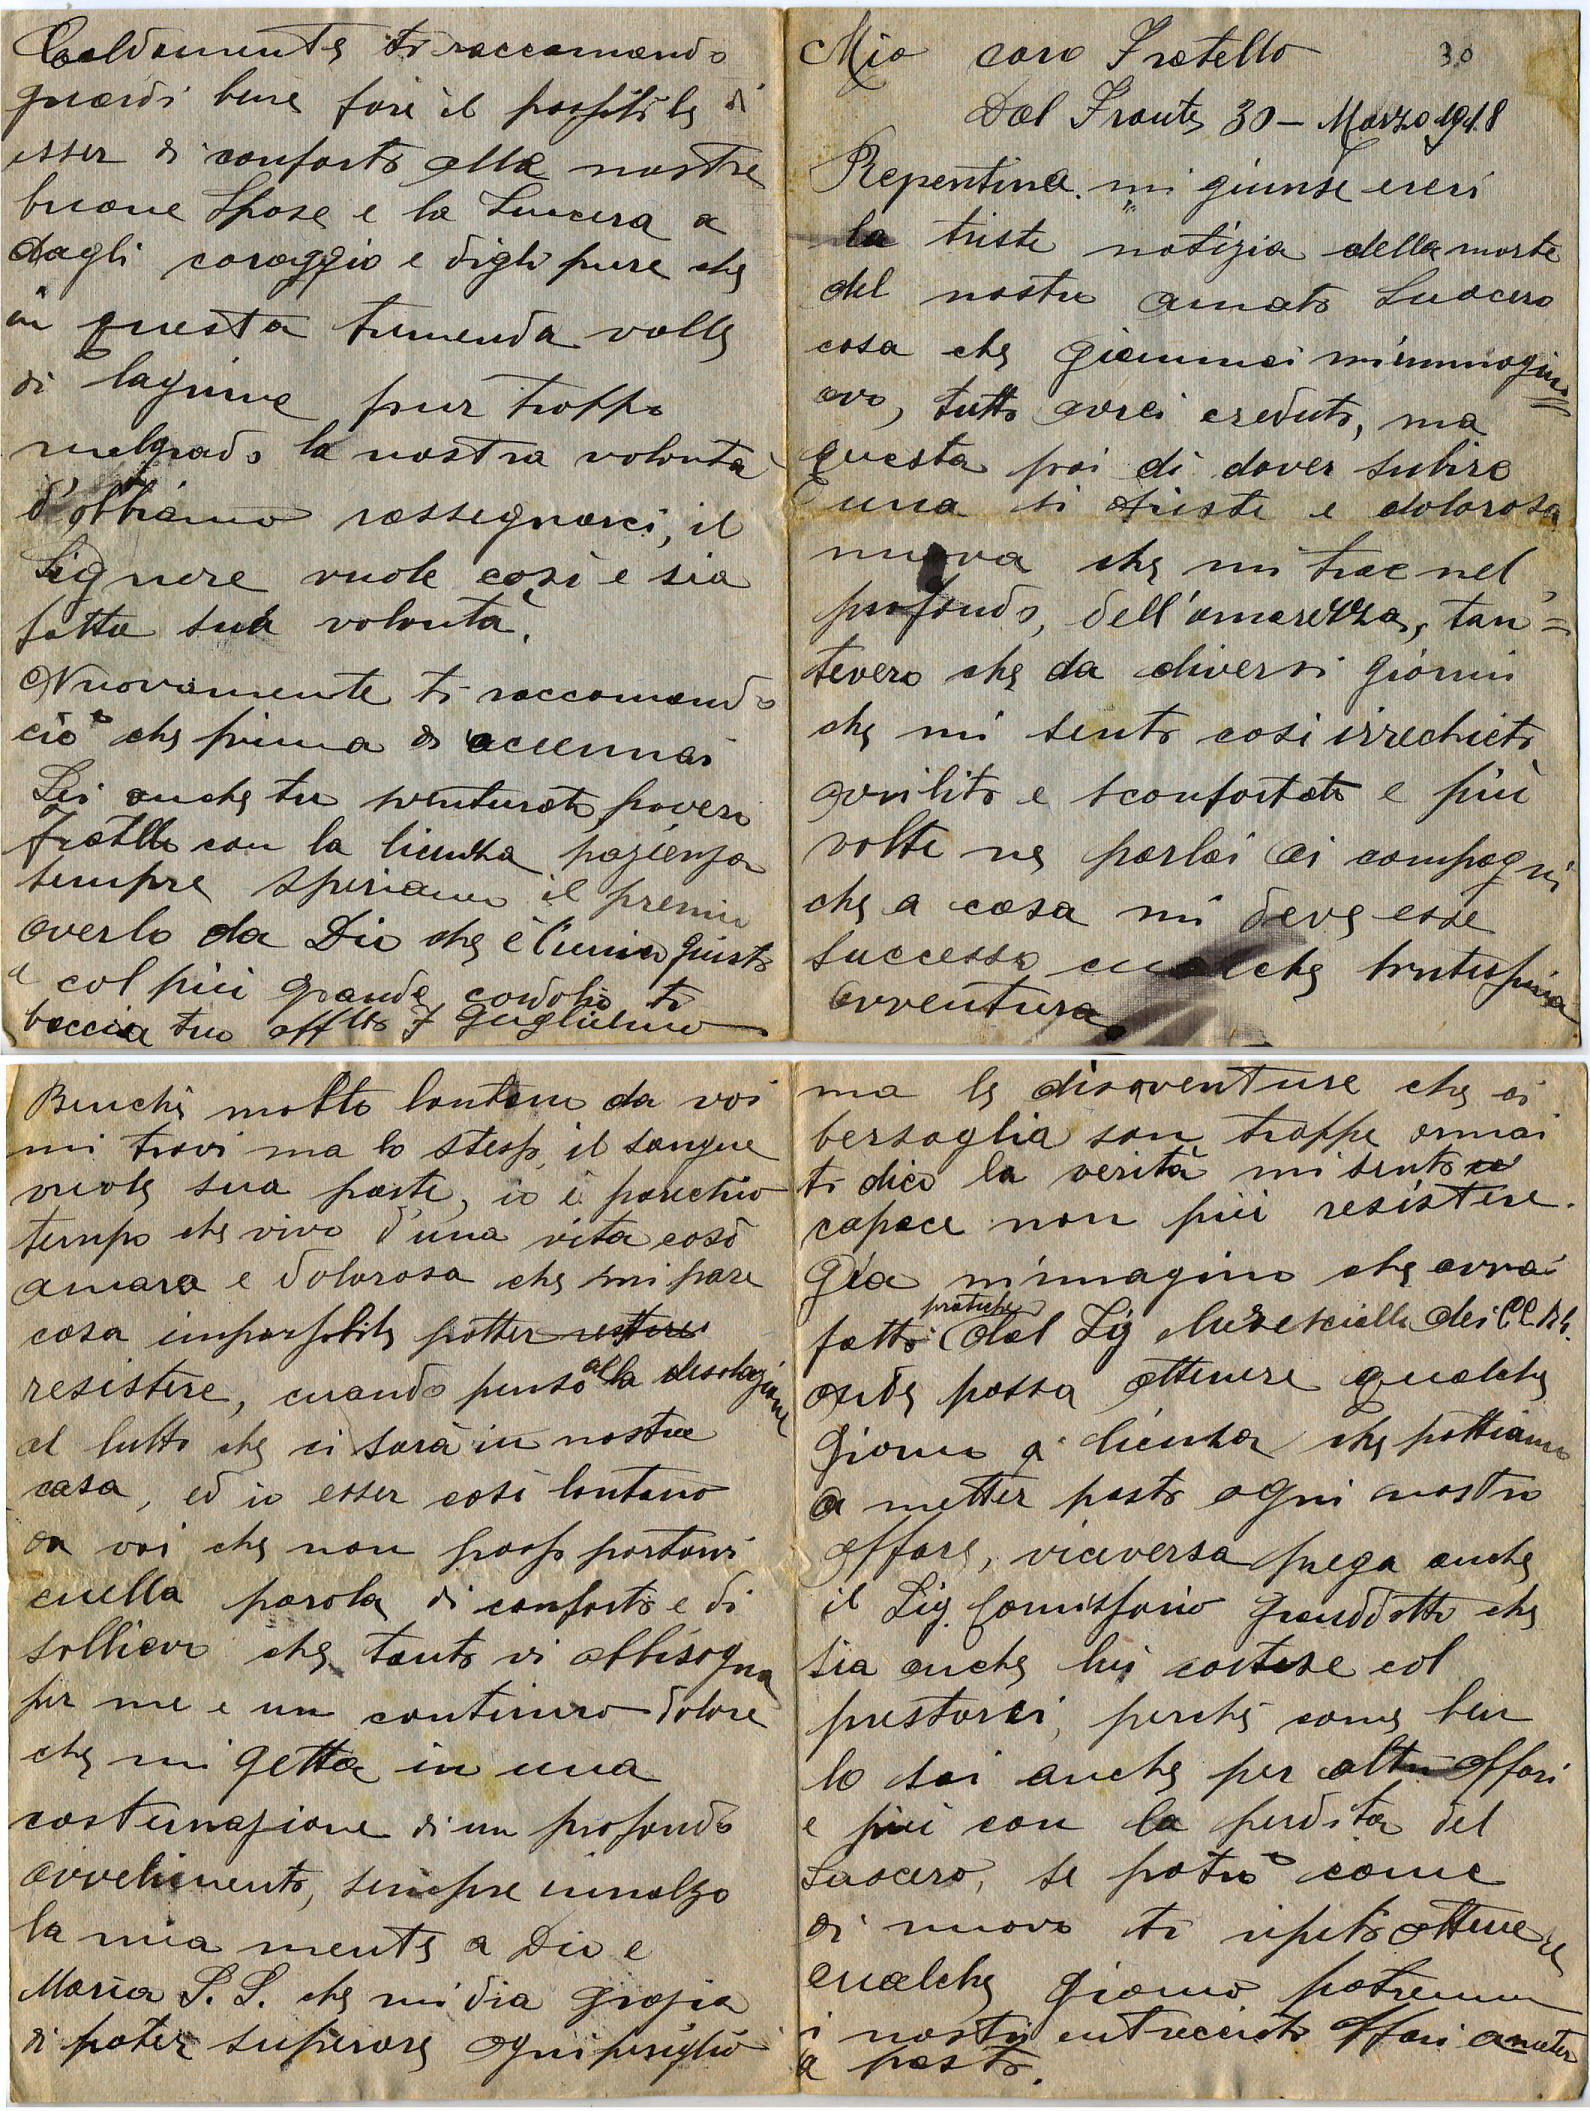 Mio caro Fratello 30
Dal Fronte 30 - Marzo 1918
Repentina mi giunse ereri
la triste notizia della morte
del nostro amato Suocero
cosa che giammai m'immagin=
avo, tutto avrei creduto, ma
questa poi di dover subire
una si triste e dolorosa
nuova che mi trae nel
profondo, dell'amarezza, tan=
tevero che da diversi giorni
che mi sento cosi irrechieto
avvilito e sconfortato e più
volte ne parlai ai compagni
che a casa mi deve esse
successo cualche bruttissima
avventura.
Benchè molto lontano da voi
mi trovi ma lo stesso, il sangue
vuole sua parte, io è parechio
tempo che vivo d'una vita così
amara e dolorosa che mi pare
cosa impossibile potter restere
resistere, cuando penso alla desolazione
al lutto che ci sarà in nostra
casa, ed io esser così lontano
da voi che non posso portarvi
cuella parola di conforto e di
sollievo che tanto vi abbisogna
per me e un continuro dolore
che mi getta in una
costernazione di un profondo
avvelimento, sempre innalzo
la mia mente a Dio e
Maria S. S. che mi dia grazia
di poter superare ogni periglio
ma le disavventure che ci
bersaglia son troppe ormai
ti dico la verità mi sento
capace non più resistere.
Gia m'immagino che avrai
fatto pratiche dal Sig Marescialle dei CC. RR.
onde possa ottenere qualche
giorno di licenza che pottiamo
a metter posto ogni nostro
affare, viceversa prega anche
il Sig. Comissario Grandotto che
sia anche lui cortese col
prestarci, perchè come ben
lo sai anche per altri affari
e più con la perdita del
Suocero, se potrò come
di nuovo ti ripeto ottenere
cualche giorno potremo
i nostri intrecciati affari a meter
a posto.
Caldamente ti raccomando
guardi bene fare il possibile di
esser di conforto alle nostre
buone Spose e la Suocera a
dagli coraggio e digli pure che
in questa tremenda valle
di lagrime pur troppo
malgrado la nostra volontà
d'obbiamo rassegnarci, il
Signore vuole così e sia
fatta sua volontà.
Nuovamente ti raccomando
ciò che prima di accennai
Sei anche tu sventurato povero
fratello con la licenza pazienza
sempre speriamo il premio
averlo da Dio che è l'unico giusto
e col più grande cordolio ti
baccia tuo aff tto F Guglielmo